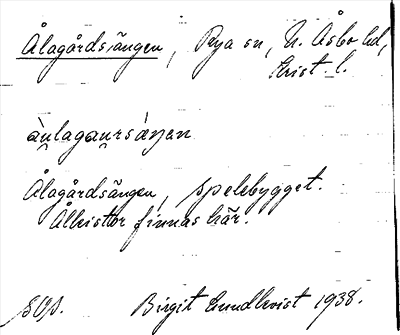 Ålagårdsängen, Rya sn, N. Åsbo hd,
Krist. l.
Ålagårdsängen, spelebygget.
Alkistor finnas här.
Birgit Lundkvist 1938.